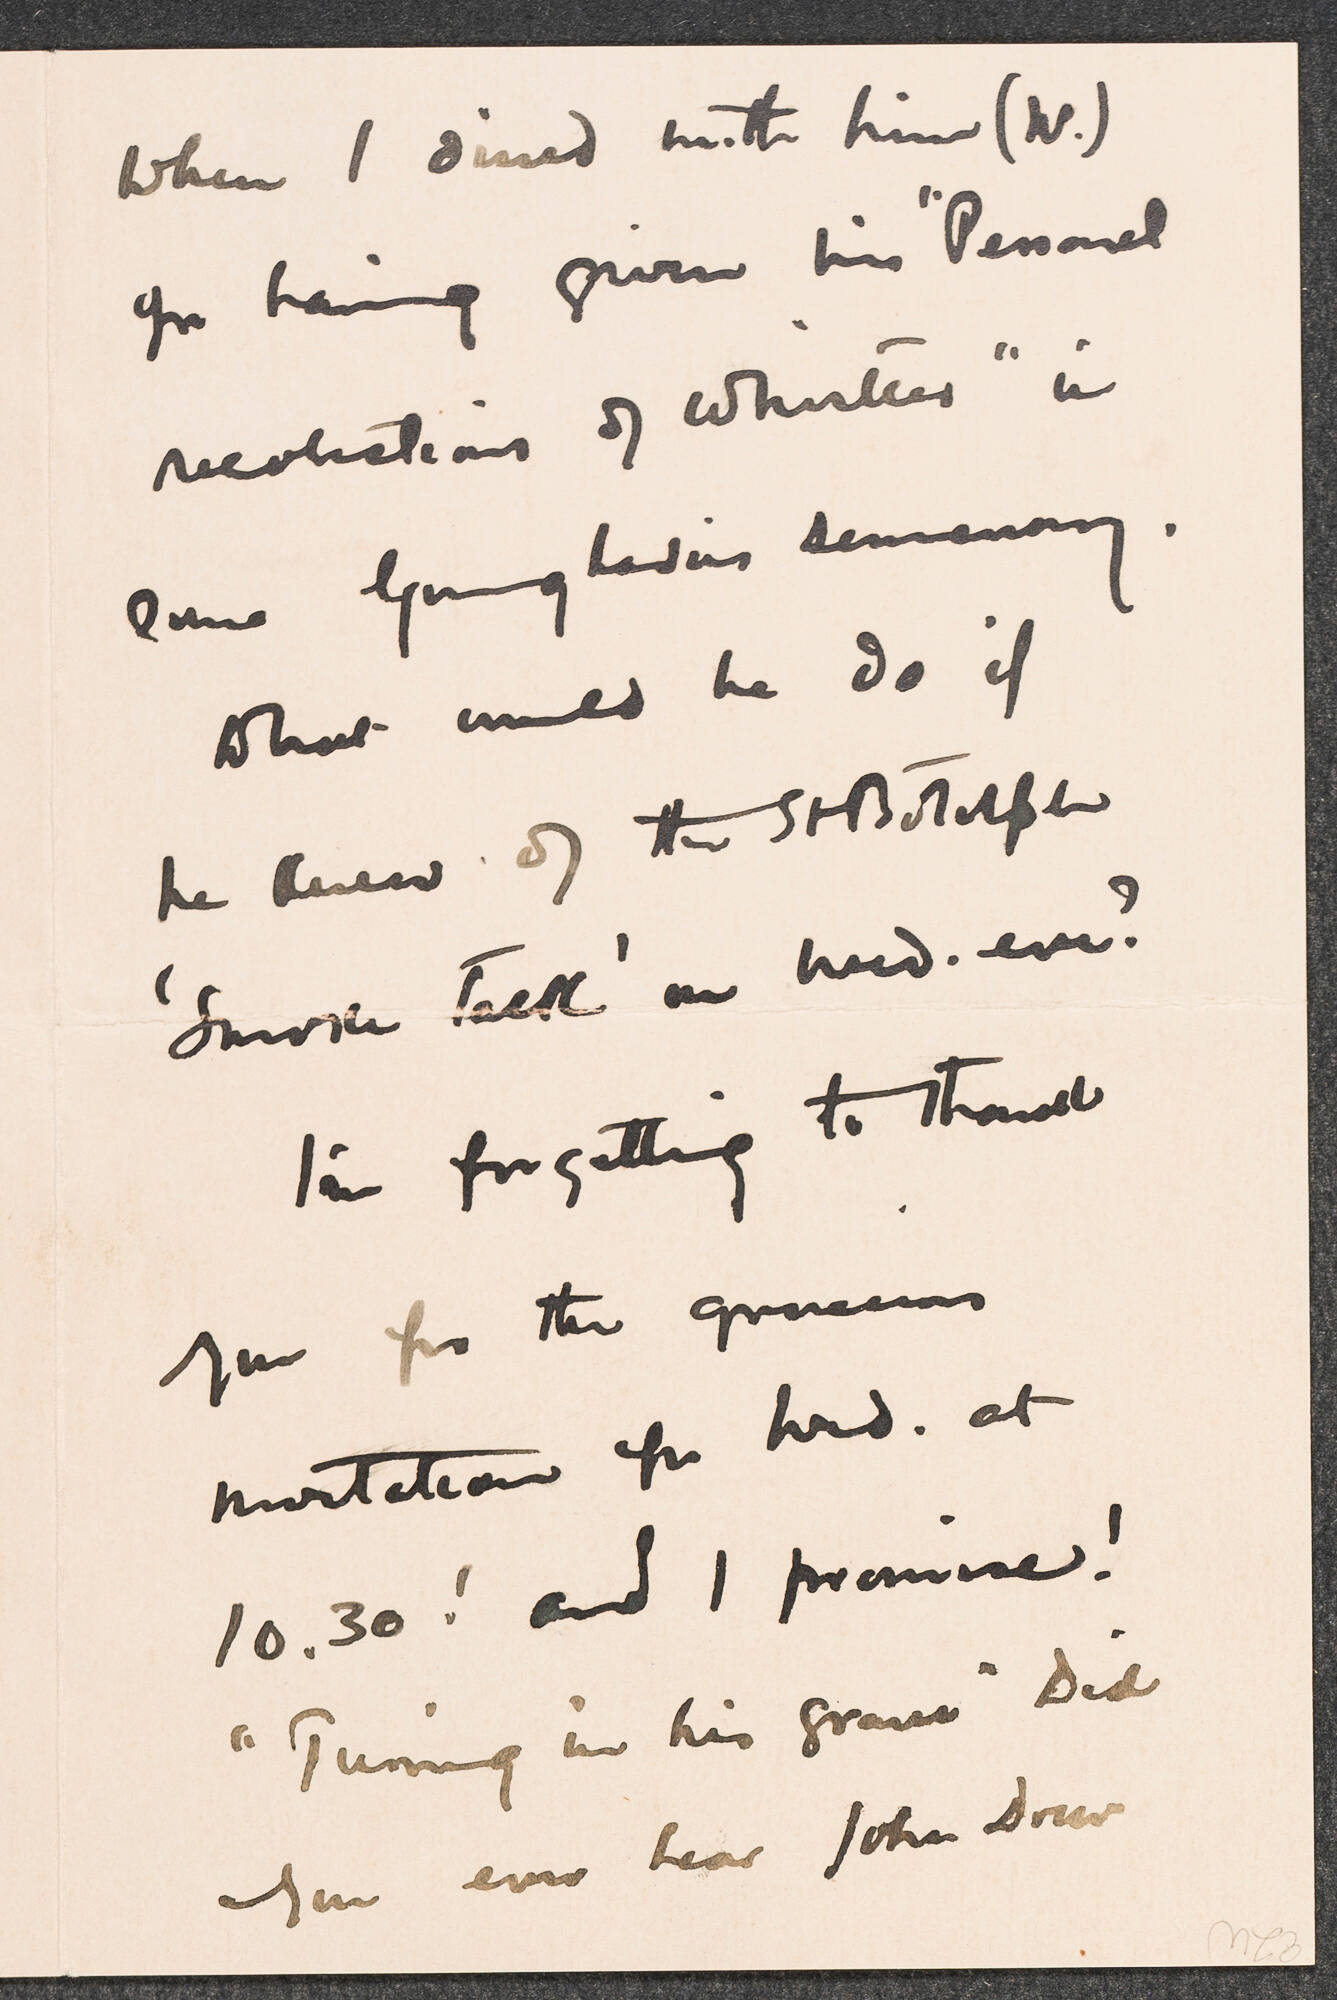 When I dined with him (W.)
for having given his "Personal
recollections of Whistler" in
some Young Ladies seminary.
What would he do if
he knew of the St Botolph
'Smoke Talk' on Wed. eve?
I'm forgetting to thank
you for the generous
invitation for Wed. at
10.30! and I promise!
"Turning in his grave" Did
you ever hear John Drew